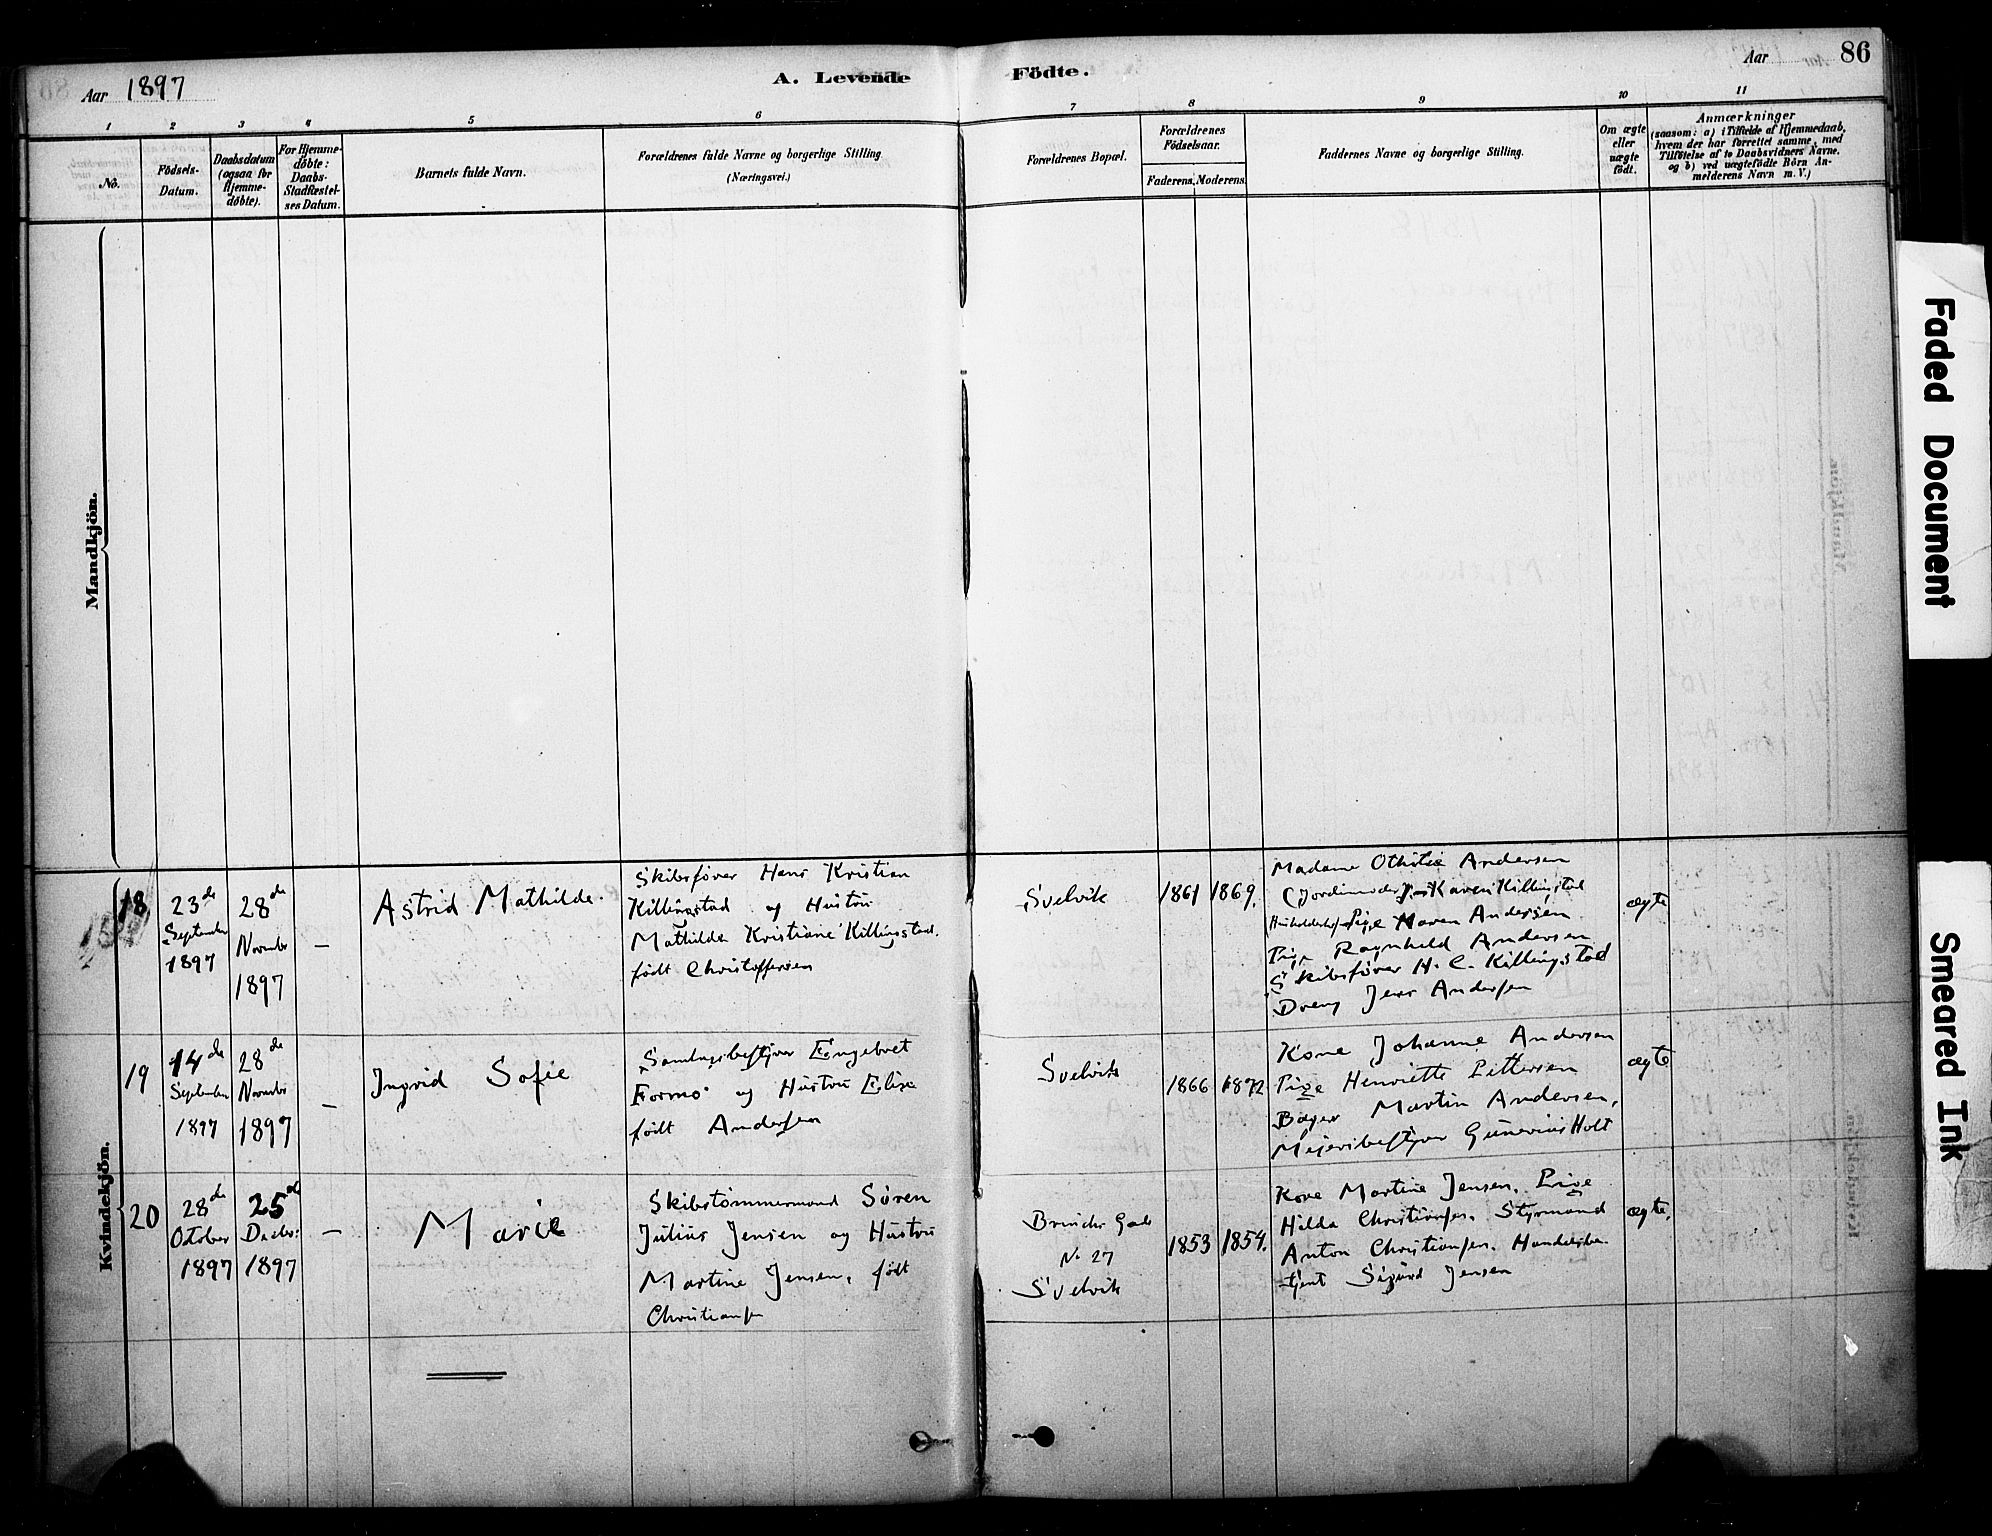 Aar 1897
A. Levende Födte.
Aar
86
1
2
3
4
5
6
7
8
9
10
11
No.
Födsels-
Datum.
Daabsdatum
(ogsaa for
Hjemme-
døbte).
For Hjemme-
døbte:
Daabs-
Stadfæstel-
ses Datum.
Barnets fulde Navn.
Forældrenes fulde Navne og borgerlige Stilling
(Næringsvei.)
Forældrenes Bopæl.
Forældrenes
Födselsaar.
Faderens.
Moderens.
Faddernes Navne og borgerlige Stilling.
Om ægte
eller
uægte
födt.
Anmærkninger
(saasom: a) i Tilfælde af Hjemmedaab,
hvem der har forrettet samme, med
Tilföielse af to Daabsvidners Navne.
og b) ved uægtefödte Börn An-
melderens Navn m. V.)
Mandkjön.
Kvindekjön.
18
23de
September
1897
28de
November
1897
–
Astrid Mathilde.
Skibsfører Hans Kristian
Killingstad og Hustru
Mathilde Kristiane Killingstad.
født Christoffersen
Svelvik
1861
1869.
Madame Othilie Andersen
(Jordemoder) Karen Killingstad
Pige Maren Andersen
Pige Ragnhild Andersen
Skibsfører H. C. Killingstad
Dreng Jens Andersen
ægte
19
14de
September
1897
28de
November
1897
–
Ingrid Sofie
Samlagsbestyrer Engebret
Formo og Hustru Elise
født Andersen
Svelvik
1866
1872
Kone Johanne Andersen
Pige Henriette Pettersen
Bager Martin Andersen,
Meieribestyrer Gunerius Holt
ægte
20
28de
Oktober
1897
25de
Decbr:
1897
–
Marie
Skibstømmermand Søren
Julius Jensen og Hustru
Martine Jensen, født
Christiansen
No 27
Svelvik
1853
1854.
Kone Martine Jensen, Pige
Hilda Christiansen. Styrmand
Anton Christiansen. Handelsbe-
tjent Sigurd Jensen
ægte.
Faded Document
Smeared Ink